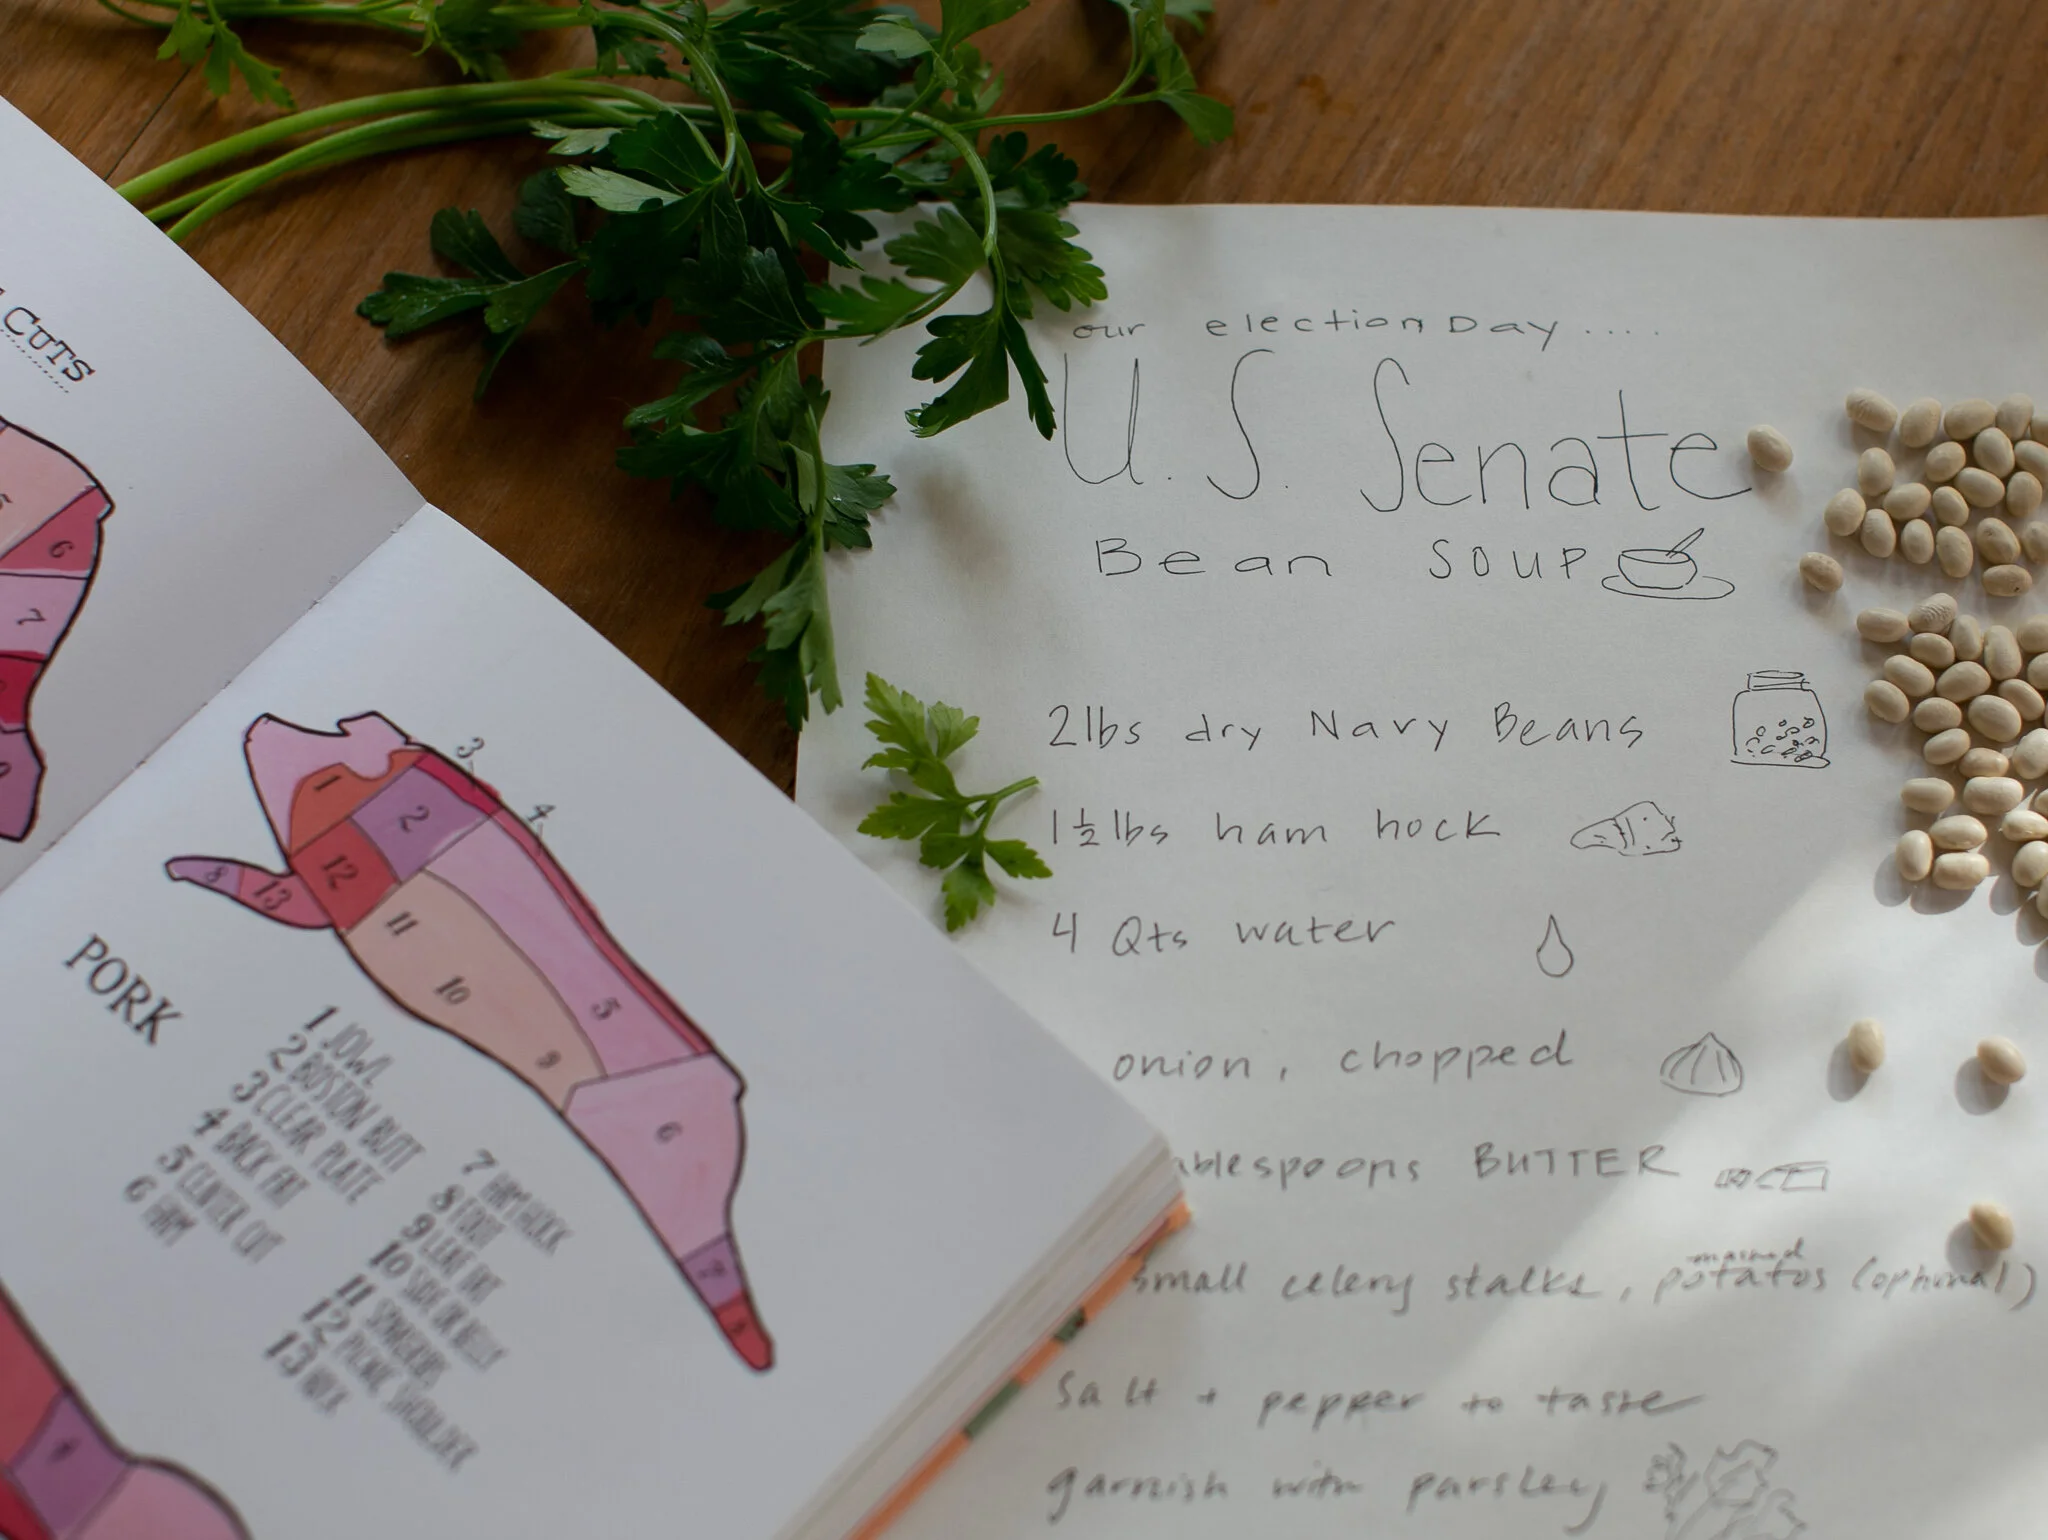 CUTS
6
7
PORK
1
2
3
4
12
8
13
11
10
5
9
6
7
1 JOWL
2 BOSTON BUTT
3 CLEAR PLATE
4 BACK FAT
5 CENTER CUT
6 HAM
7 HAM HOCK
8 FOOT
9 LEAF FAT
10 SIDE OR BELLY
11 SPARERIBS
12 PICNIC SHOULDER
13 HOCK
our election Day .....
U.S. Senate
Bean SOUP
2 lbs dry Navy Beans
1 ½ lbs ham hock
4 Qts water
onion, chopped
ablespoons BUTTER
small celery stalks, mashed potatos (optional)
Salt + pepper to taste
garnish with parsley